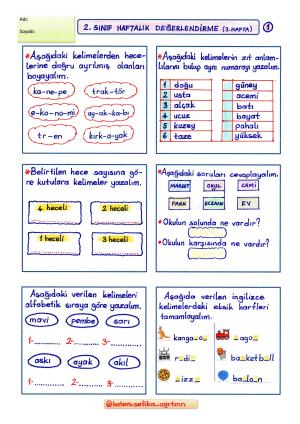 Adı:
Soyadı:
2. SINIF HAFTALIK DEĞERLENDİRME (3. HAFTA)
1
*Aşağıdaki kelimelerden hece-
lerine doğru ayrılmış olanları
boyayalım.
ka-ne-pe
trak-tör
e-ka-no-mi
ay-ak-ka-bı
tr-en
kırk-a-yak
*Aşağıdaki kelimelerin zıt anlam-
lılarını bulup aynı numarayı yazalım.
1 doğu
güney
2 usta
acemi
3 alçak
batı
4 ucuz
bayat
5 kuzey
pahalı
6 taze
yüksek
*Belirtilen hece sayısına gö-
re kutulara kelimeler yazalım.
4 heceli
2 heceli
1 heceli
3 heceli
*Aşağıdaki soruları cevaplayalım.
MARKET
OKUL
CAMİ
PARK
ECZANE
EV
*Okulun solunda ne vardır?
*Okulun karşısında ne vardır?
Aşağıda verilen kelimeleri
alfabetik sıraya göre yazalım.
mavi
pembe
sarı
1-
2-
3-
askı
ayak
akıl
1-
2-
3-
Aşağıda verilen ingilizce
kelimelerdeki eksik harfleri
tamamlayalım.
kanga_o
_ago_
r_di_
ba_ketb_ll
_izz_
ba_lo_n